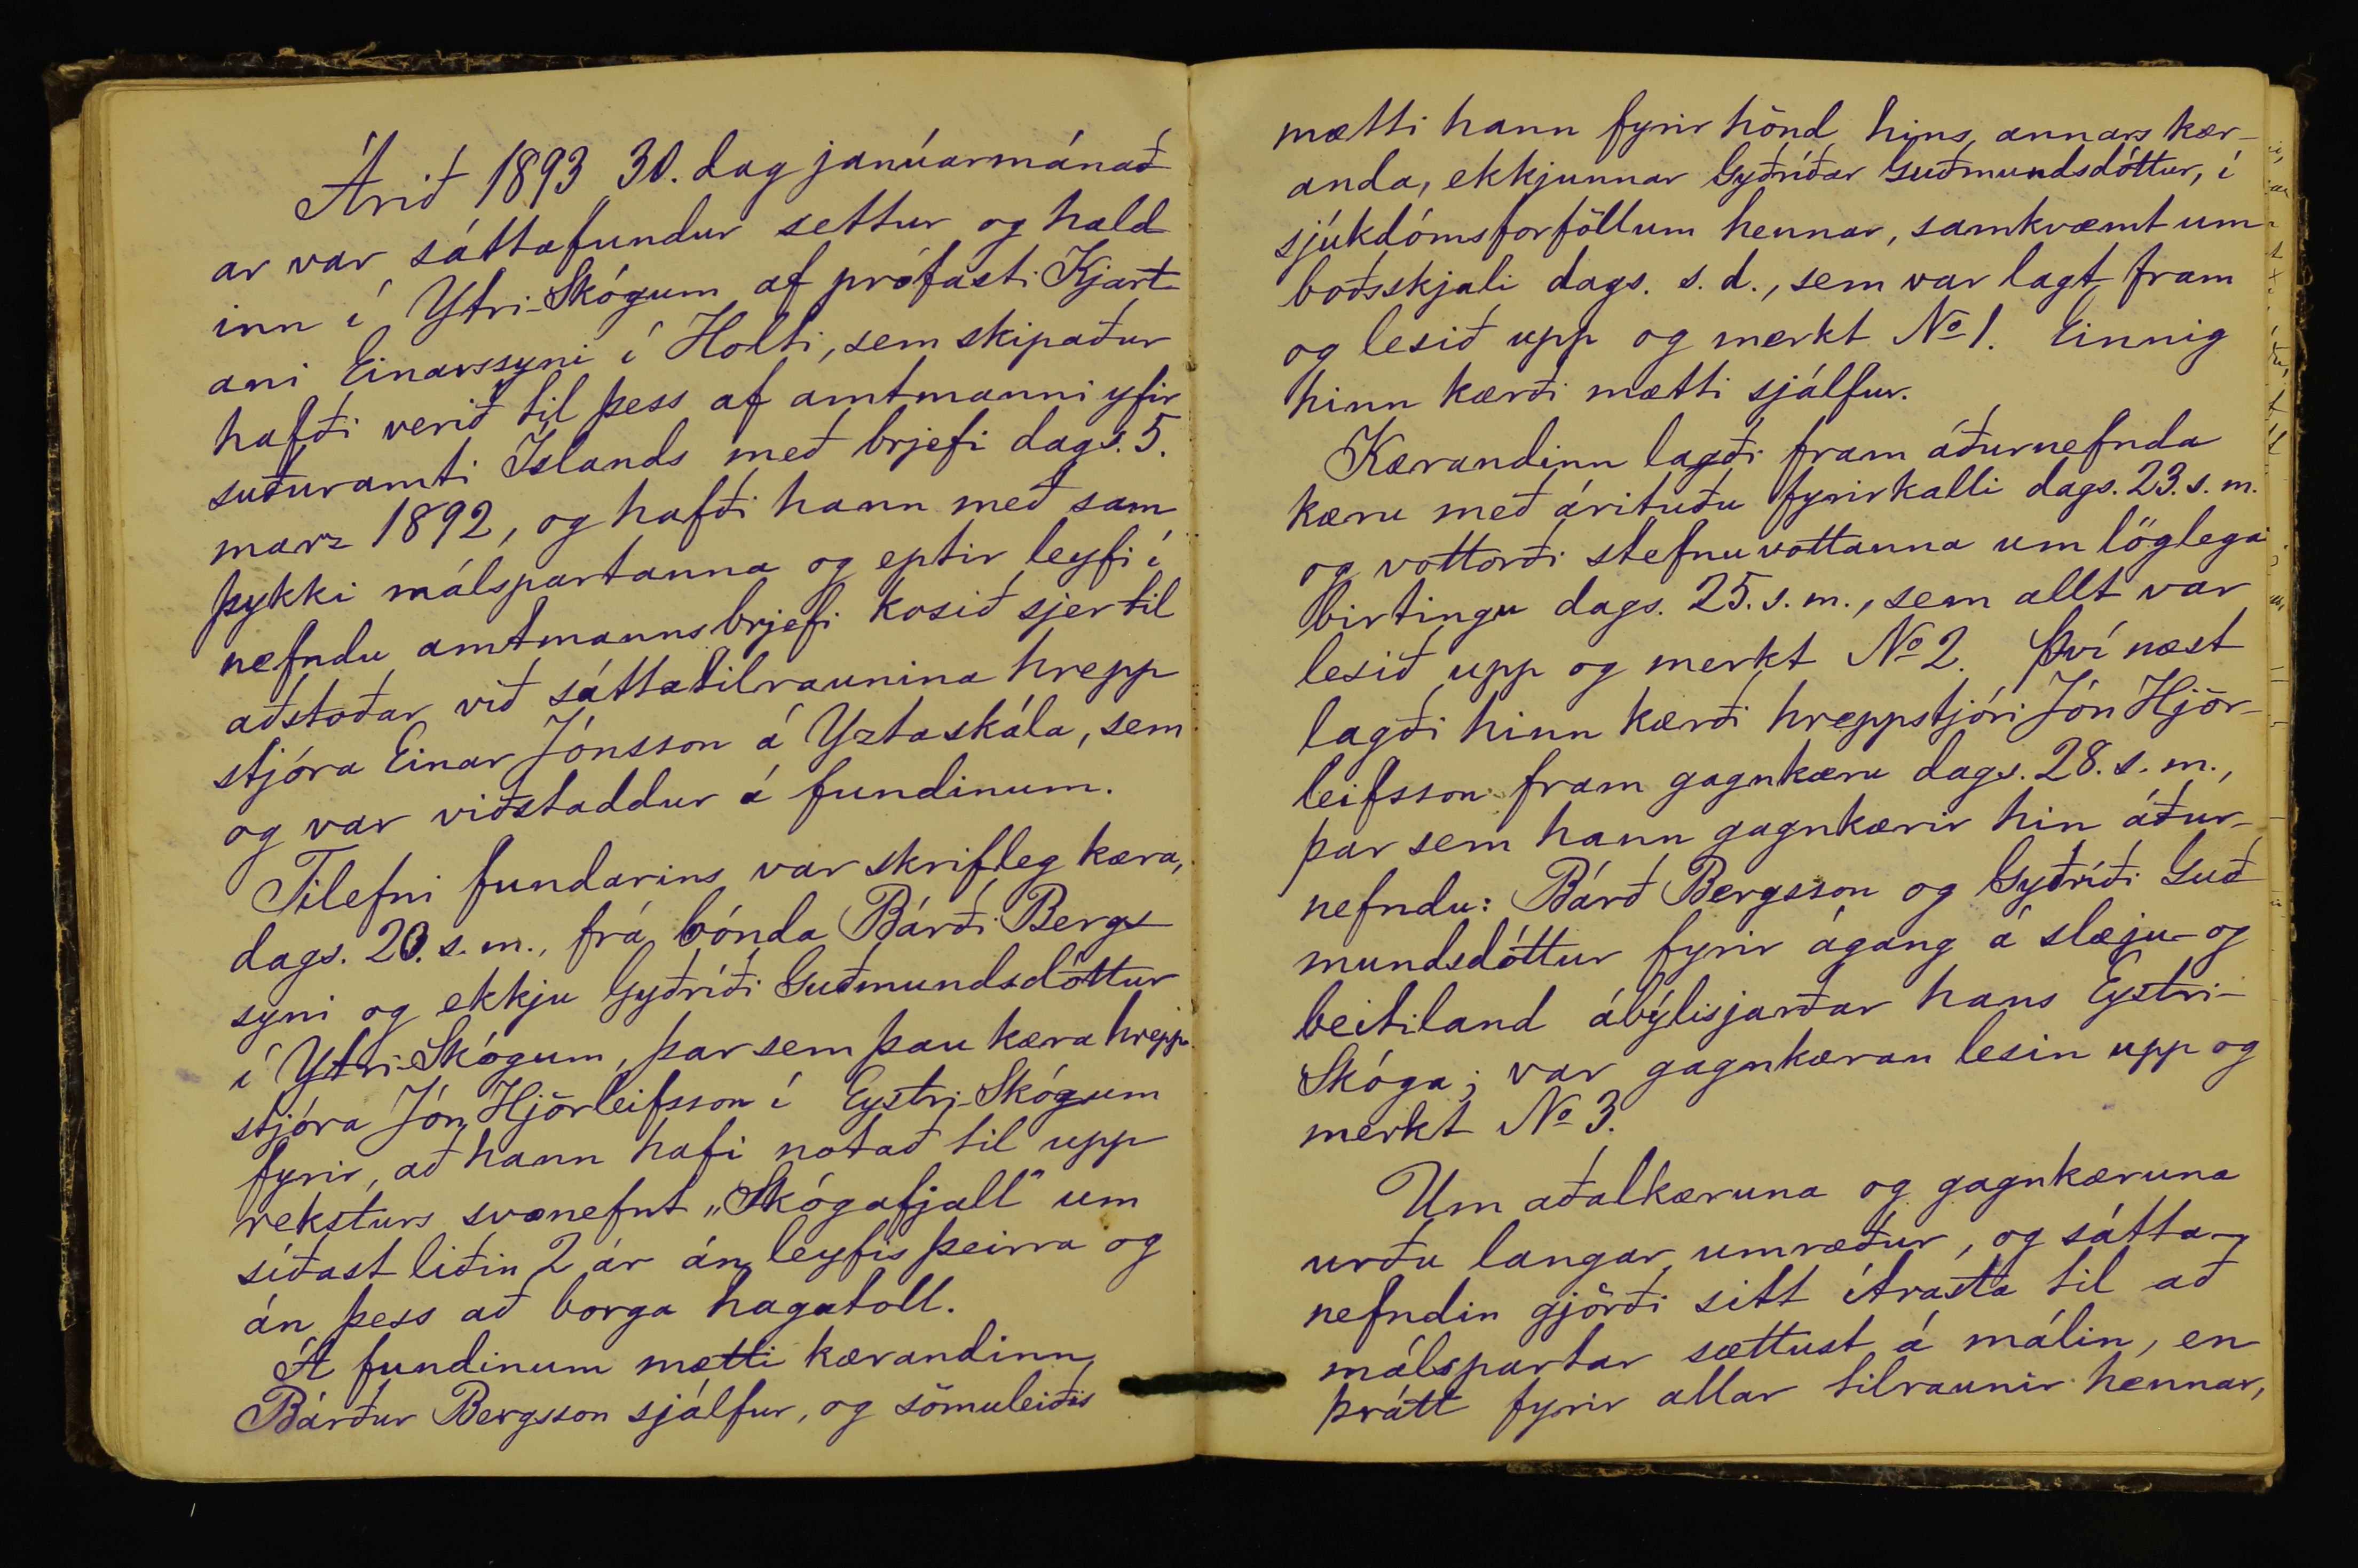 Árið 1893 30. dag janúarmánað
ar var sáttafundur settur og hald
inn í Ytri-Skógum af prófasti Kjart-
ani Einarssyni í Holti, sem skipaður
hafði verið til þess af amtmanni yfir
suðuramti Íslands með brjefi dags. 5.
marz 1892, og hafði hann með sam
þykki málspartanna og eptir leyfi í
nefndu amtmannsbrjefi kosið sjer til
aðstoðar við sáttatilraunina hrepp
stjóra Einar Jónsson á Yztaskála, sem
og var viðstaddur á fundinum.
Tilefni fundarins var skrifleg kæra,
dags. 20. s. m., frá bónda Bárði Bergs
syni og ekkju Gyðríði Guðmundsdóttur
í Ytri-Skógum, þar sem þau kæra hrepp
stjóra Jón Hjörleifsson í Eystri-Skógum
fyrir, að hann hafi notað til upp
reksturs svonefnt „Skógafjall" um
síðast liðin 2 ár án leyfis þeirra og
án þess að borga hagatoll.
Á fundinum mætti kærandinn
Bárður Bergsson sjálfur, og sömuleiðis
mætti hann fyrir hönd hins annars kær-
anda, ekkjunnar Gyðríðar Guðmundsdóttur, í
sjúkdómsforföllum hennar, samkvæmt um-
boðsskjali dags. s. d., sem var lagt fram
og lesið upp og merkt No 1. Einnig
hinn kærði mætti sjálfur.
Kærandinn lagði fram áðurnefnda
kæru með árituðu fyrirkalli dags. 23. s. m.
og vottorði stefnuvottanna um löglega
birtingu dags. 25. s. m., sem allt var
lesið upp og merkt No 2. Því næst
lagði hinn kærði hreppstjóri Jón Hjör-
leifsson fram gagnkæru dags. 28. s. m.,
þar sem hann gagnkærir hin áður-
nefndu: Bárð Bergsson og Gyðríði Guð
mundsdóttur fyrir ágang á slæju- og
beitiland ábýlisjarðar hans Eystri-
Skóga; var gagnkæran lesin upp og
merkt No 3.
Um aðalkæruna og gagnkæruna
urðu langar umræður, og sátta-
nefndin gjörði sitt ítrasta til að
málspartar sættust á málin, en
þrátt fyrir allar tilraunir hennar,